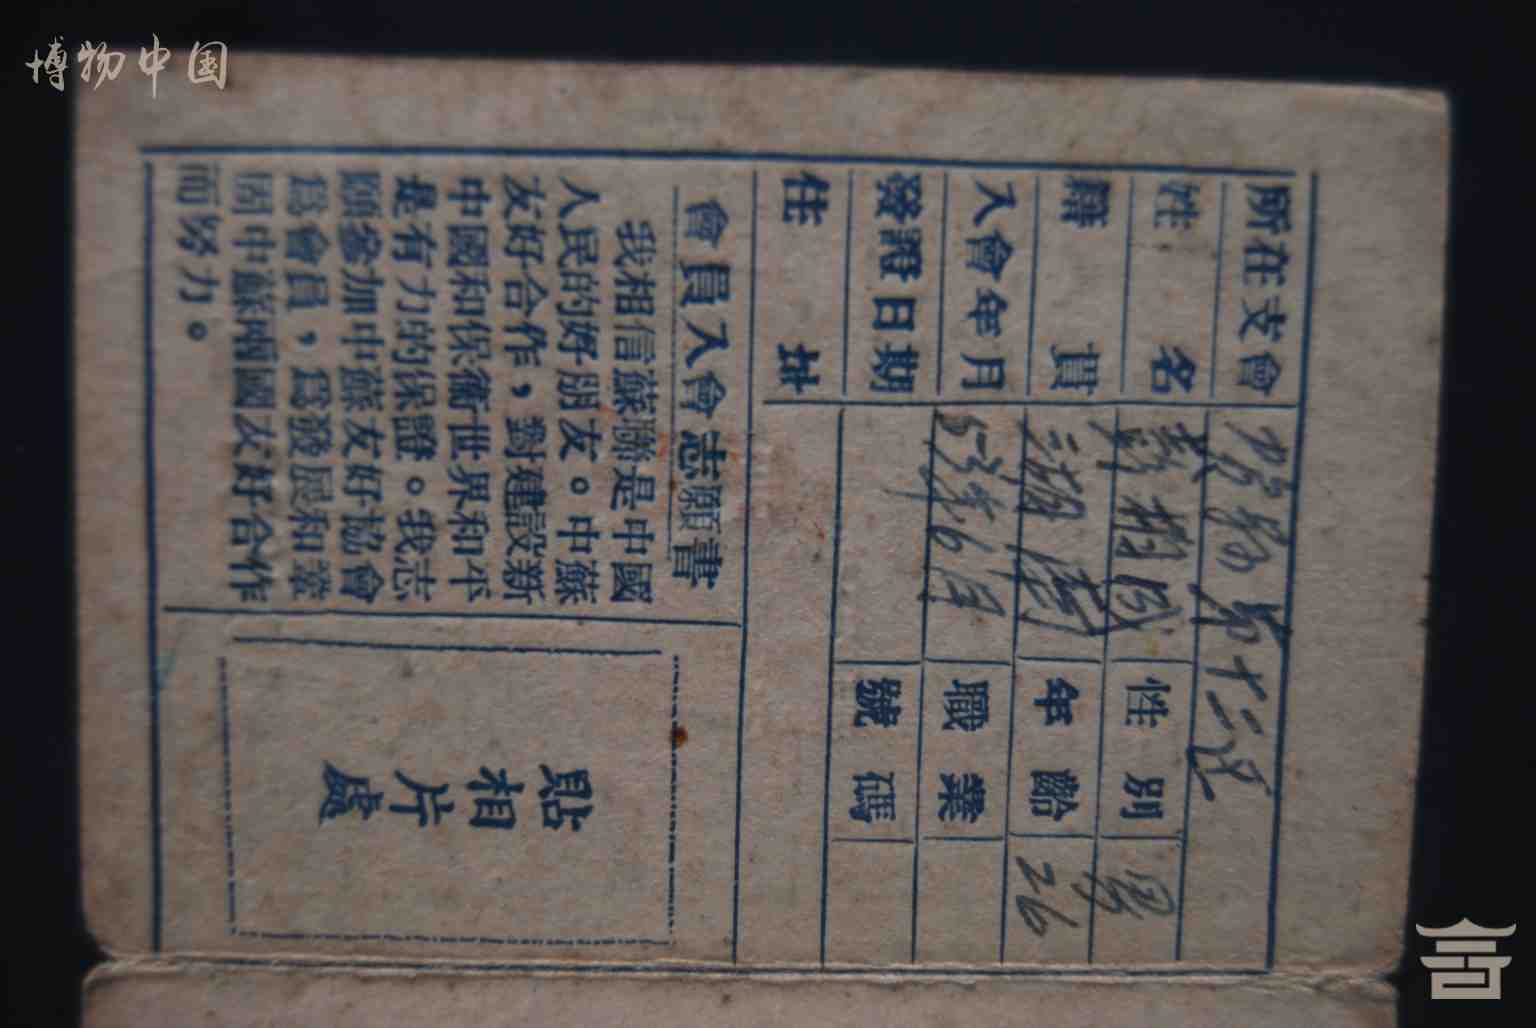 博物中国
所在支會
姓名
性別 男
籍貫
年齡 26
入會年月 53年6月
職業
發證日期
號碼
住址
會員入會志願書
我相信蘇聯是中國
人民的好朋友。中蘇
友好合作，對建設新
中國和保衞世界和平
是有力的保證。我志
願參加中蘇友好協會
爲會員，爲發展和鞏
固中蘇兩國友好合作
而努力。
貼相片處